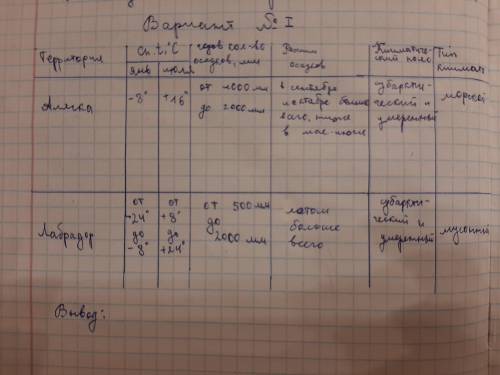 Вариант № I
Территория
Ср. t, °C
янв
июля
годов. кол-во
осадков, мм
Режим
осадков
Климатиче-
ский пояс
Тип
климат
Аляска
-8°
+16°
от 1000 мм
до 2000 мм
в сентябре
октябре больше
всего, ниже
в мае-июне
субаркти-
ческий и
умеренный
морской
Лабрадор
от
-24°
до
-8°
от
+8°
до
+24°
от 500 мм
до
2000 мм
летом
больше
всего
субаркти-
ческий и
умеренный
мусонный
Вывод: